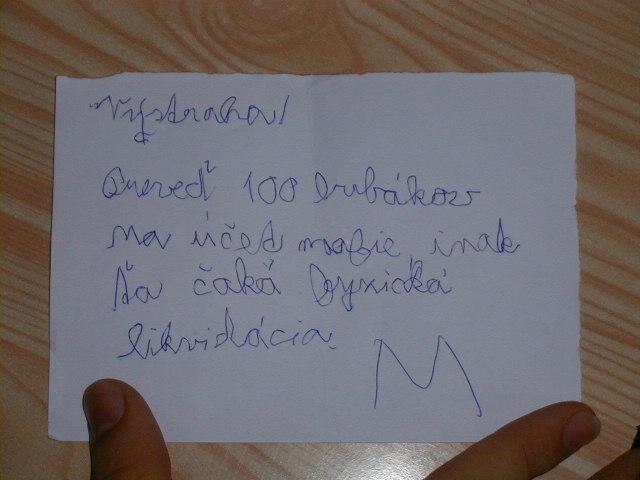 Výstraha!
Preveď 100 bubákov
na účet mafie, inak
Ťa čaká fyzická
likvidácia.
M